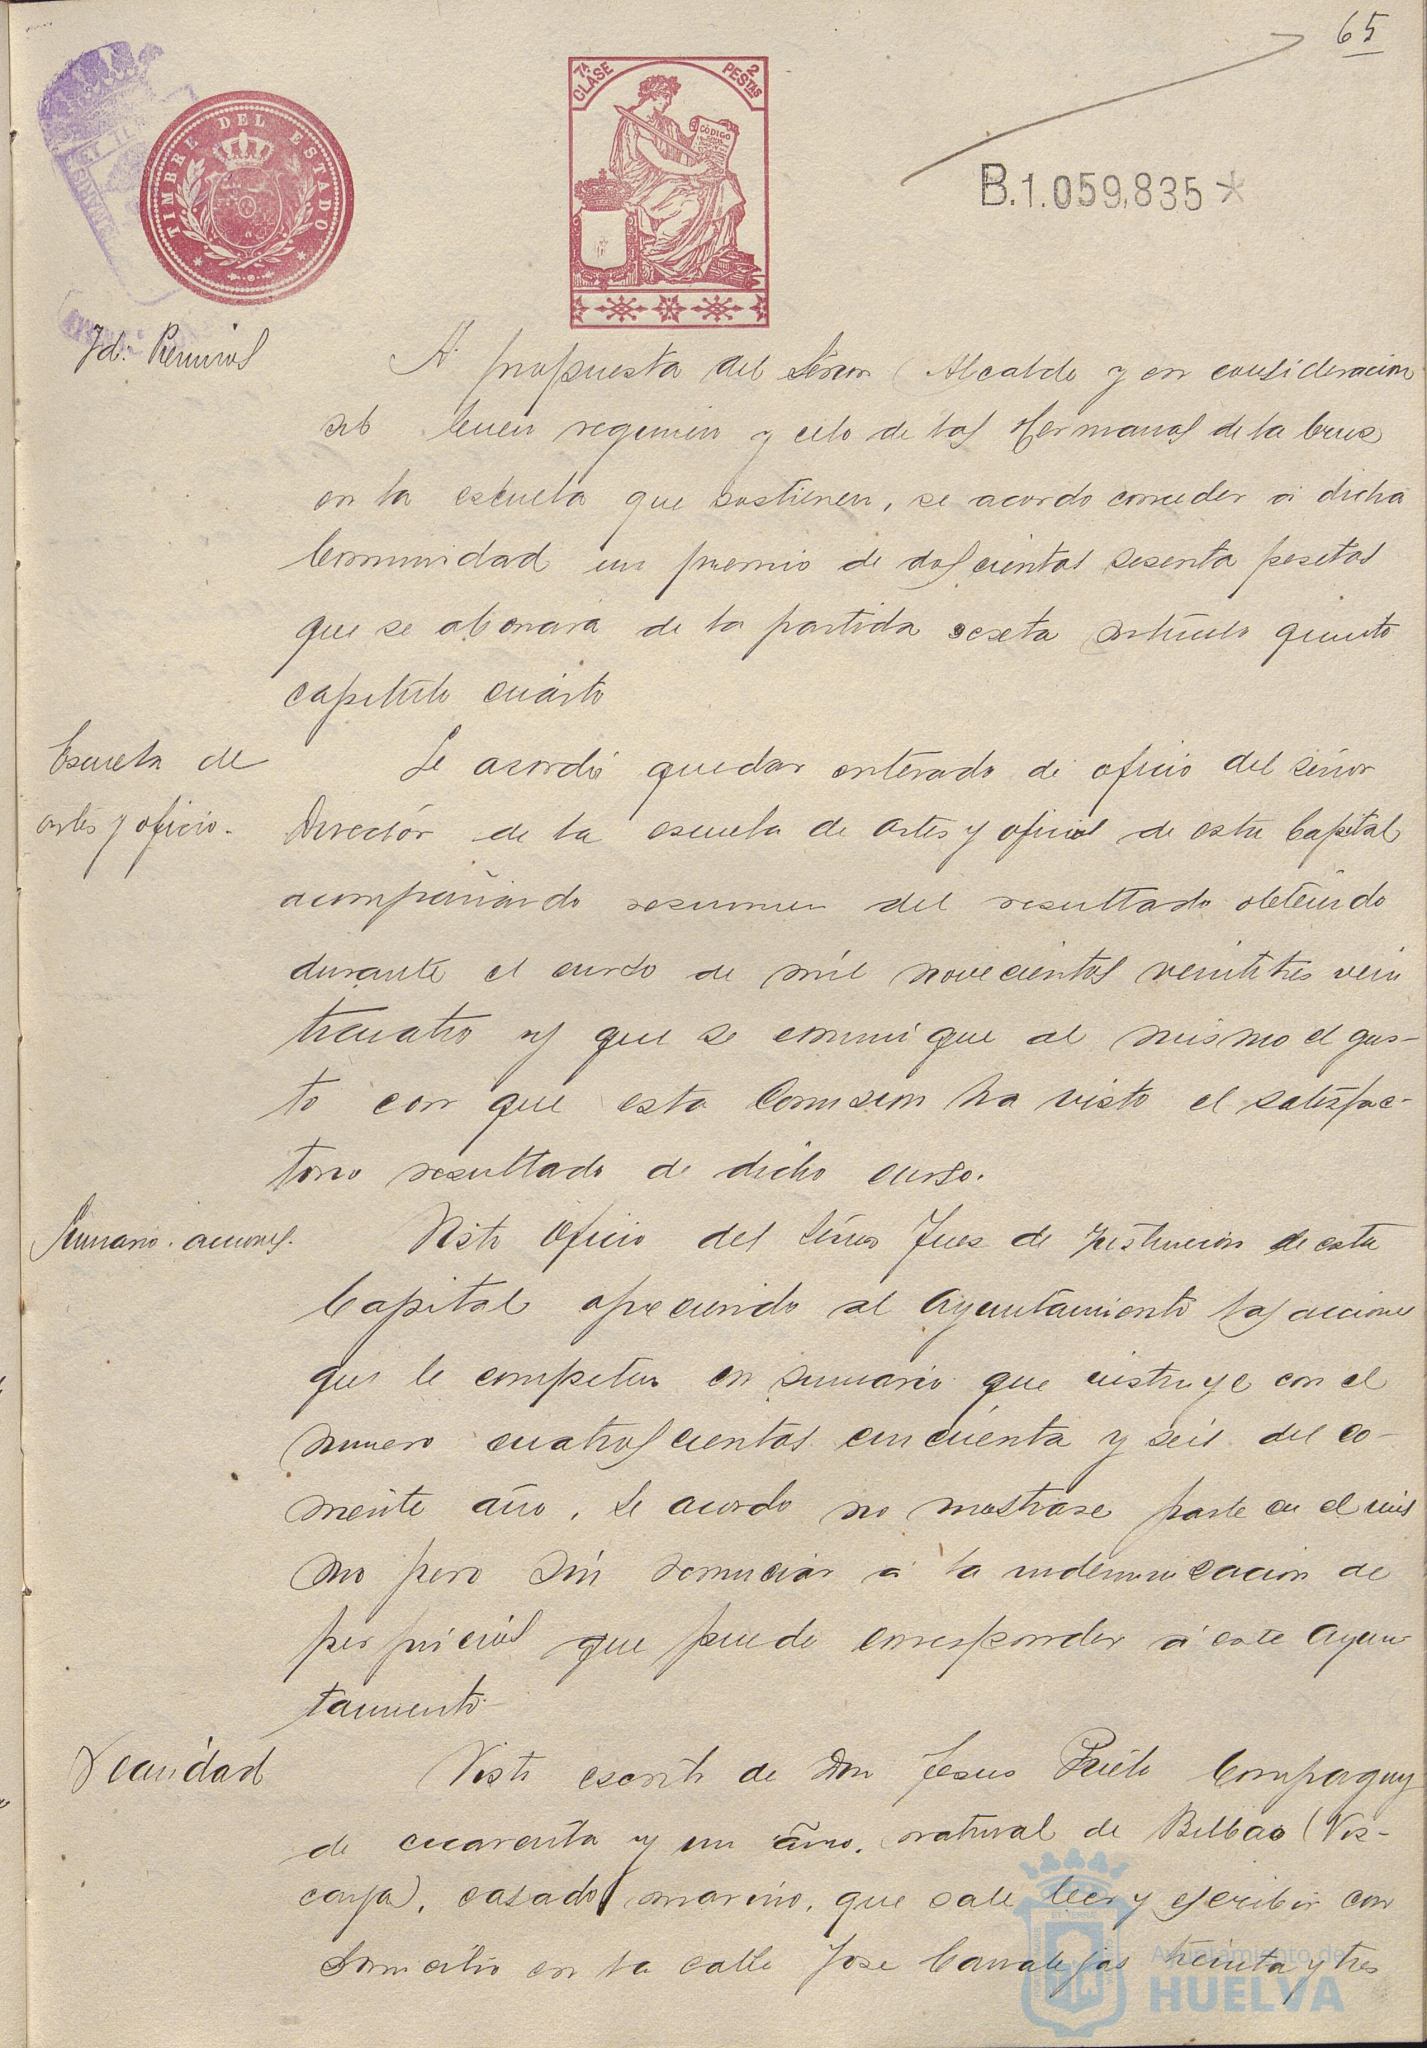 65
TIMBRE DEL ESTADO
7ª CLASE
2 PESTAS
CÓDIGO
B.1.059,835*
Id: Premios
A propuesta del Señor Alcalde y en consideracion
al buen regimen y celo de las Hermanas de la Cruz
en la escuela que sostienen, se acordo conceder a dicha
Comunidad un premio de doscientas sesenta pesetas
que se abonara de la partida sexta articulo quinto
capitulo cuarto
Escuela de
artes y oficio.
Se acordó quedar enterado de oficio del señor
Director de la escuela de artes y oficios de esta Capital
acompañando resumen del resultado obtenido
durante el curso de mil novecientos veintitres vein
ticuatro y que se comunique al mismo el gus-
to con que esta Comision ha visto el satisfac-
torio resultado de dicho curso.
Sumario. acciones.
Visto oficio del Señor Juez de Instrucion de esta
Capital ofreciendo al Ayuntamiento las acciones
que le competen en sumario que instruye con el
numero cuatroscientos cincuenta y seis del co-
rriente año, se acordo no mostrarse parte en el mis
mo pero sin renunciar a la indemnizacion de
perjuicios que puede corresponder a este Ayun
tamiento.
Vecindad
Visto escrito de Don Jesus Prieto
de cuarenta y un año, natural de Bilbao (Viz-
caya), casado, marino, que sabe leer y escribir con
domicilio en la calle Jose Canalejas treinta y tres
Ayuntamiento de
HUELVA